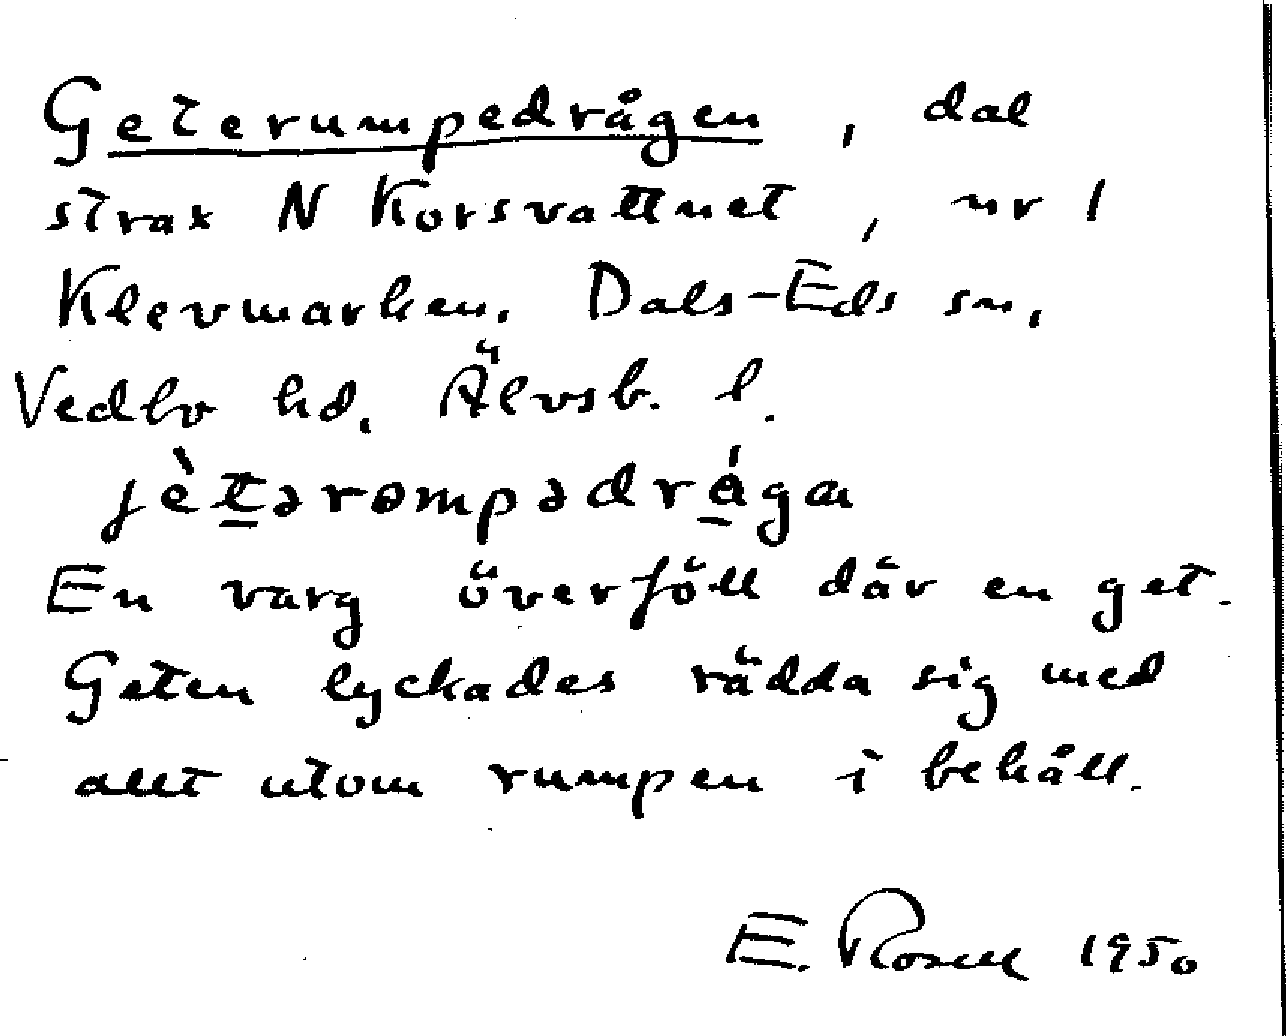 Geterumpedrågen, dal
strax N Korsvattnet, nr 1
Klevmarken. Dals-Eds sn,
Vedbo hd. Älvsb. l.
jètərompədrága
En varg överföll där en get.
Geten lyckades rädda sig med
allt utom rumpen i behåll.
E. Rosell 1950